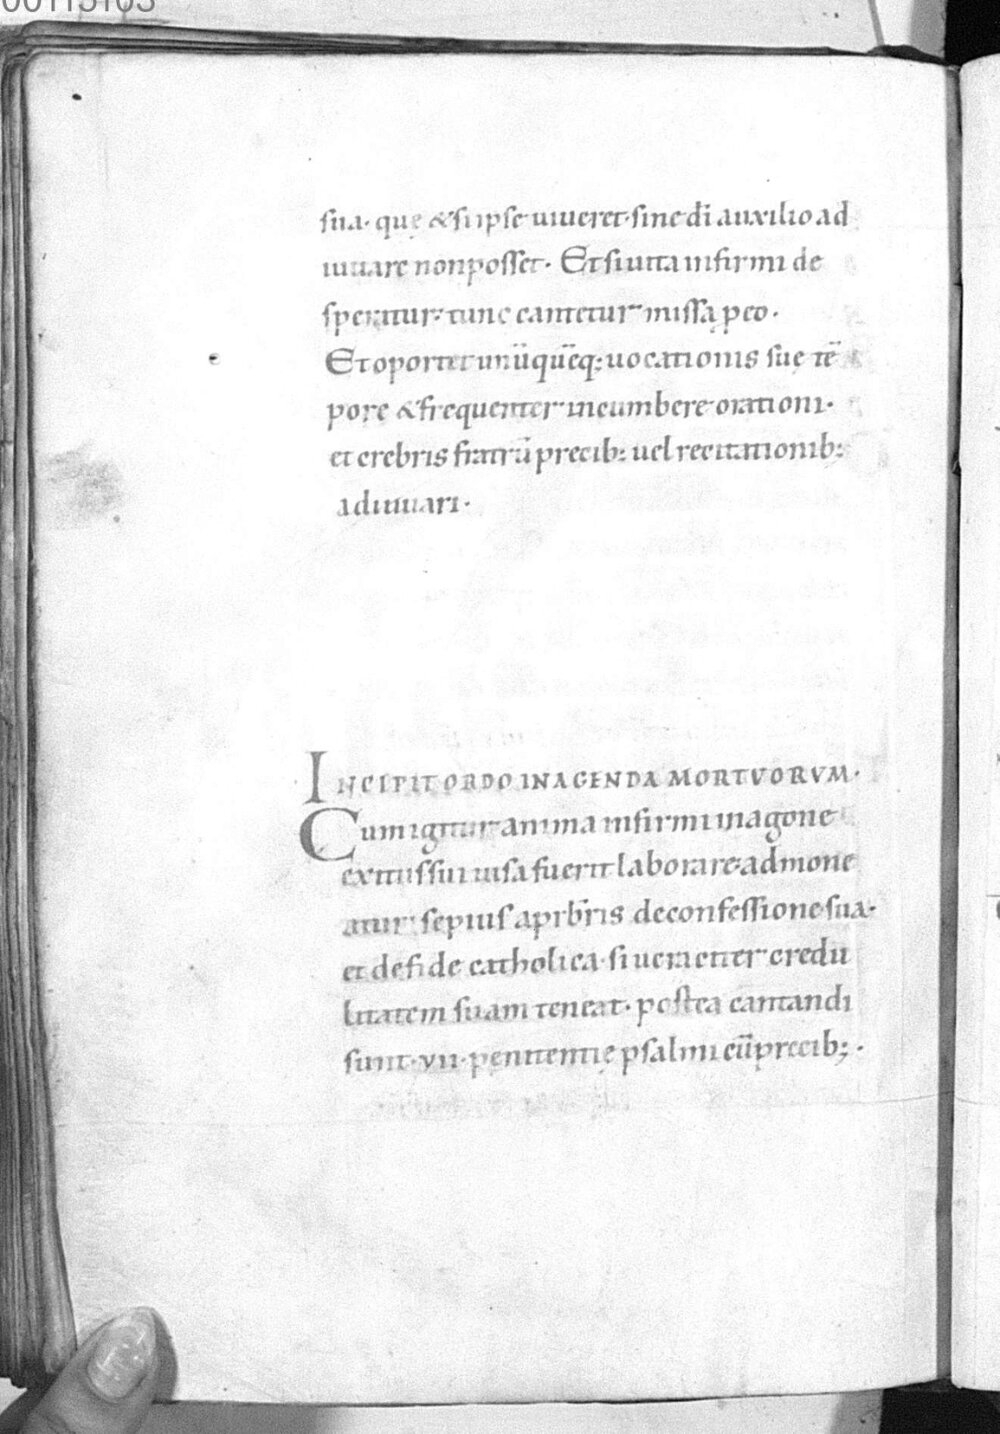 00113103
sua· quę & si ipse uiueret· sine dī auxilio ad
iuuare non posset· Et si uita infirmi de
speratur· tunc cantetur missa ꝓ eo·
Et oportet unūquēq; uocationis suę tē
pore & frequenter incumbere orationi·
et crebris fratrū precib; uel recitationib;
adiuuari·
INCIPIT ORDO IN AGENDA MORTVORVM·
Cum igitur anima infirmi in agone
exitus sui uisa fuerit laborare· admone
atur sepius a prb̄ris de confessione sua·
et de fide catholica· si ueraciter credu
litatem suam teneat· postea cantandi
sunt· vii· penitentię psalmi cū precib;·